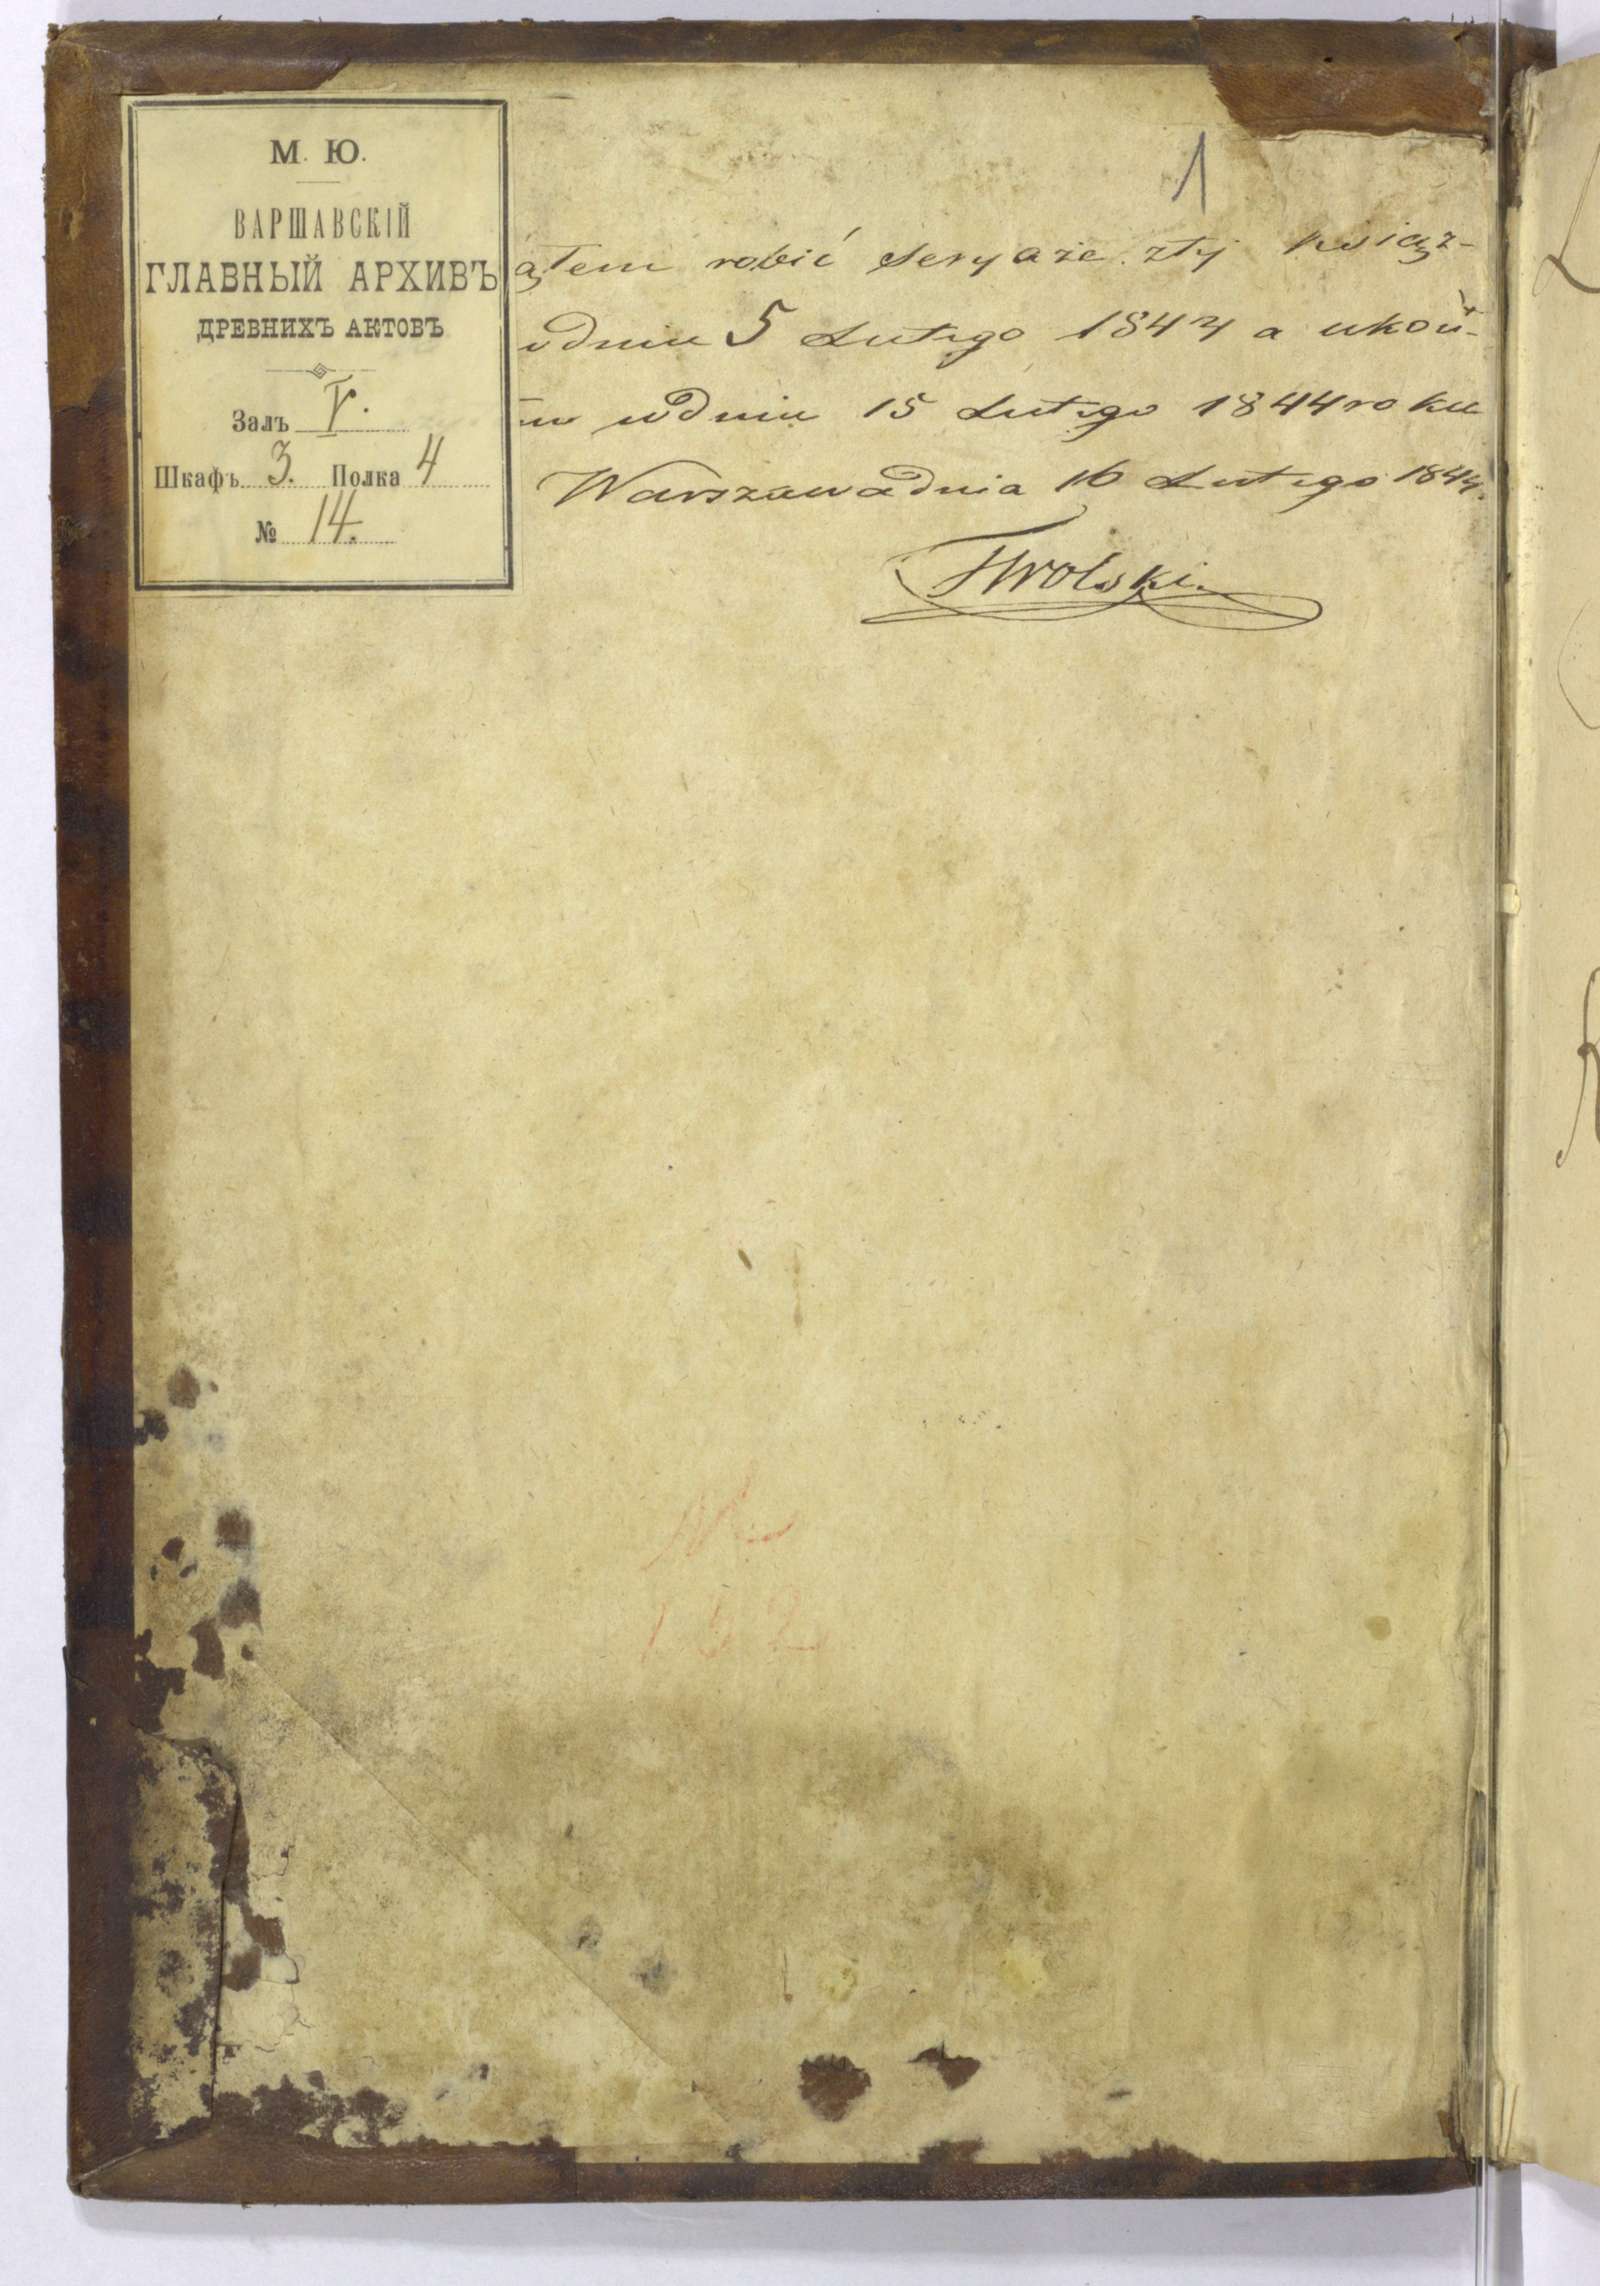 М. Ю.
ВАРШАВСКІЙ
ГЛАВНЫЙ АРХИВЪ
ДРЕВНИХЪ АКТОВЪ
Залъ V.
Шкафъ 3. Полка 4
№ 14.
1
ątem robić Seryaże ztý Książ-
wdniu 5 Lutego 1844 a ukoń-
em wdniu 15 Lutego 1844 roku
Warszawa dnia 16 Lutego 1844.